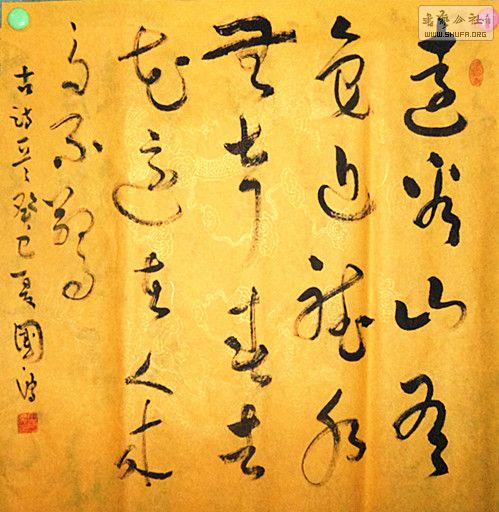 遠看山有
色近聽水
無聲春去
花還在人來
鳥不驚
古詩一首癸巳夏國
書藝公社
WWW.SHUFA.ORG